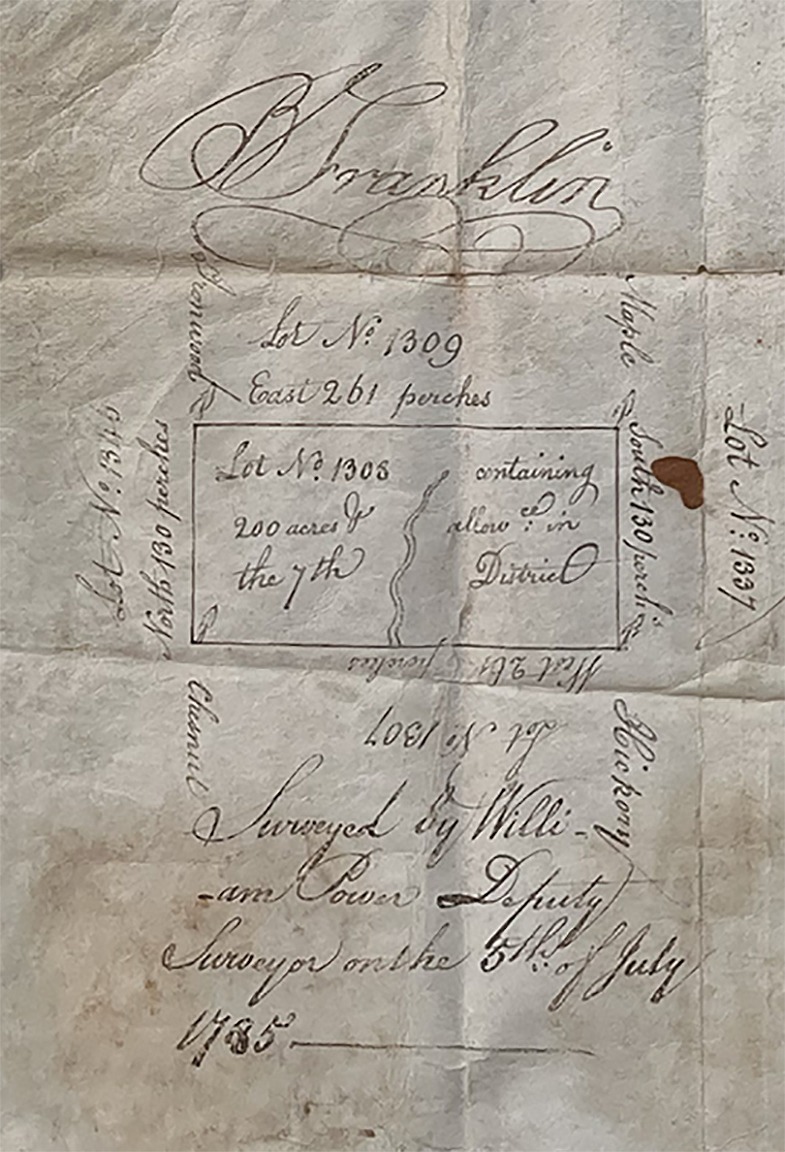 B Franklin
Ironwood
Maple
Lot No. 1309
East 261 perches
Lot No. 1346
North 130 perches
Lot No. 1308 containing
200 acres & allow.ce in
the 7th District
South 130 perch.s
Lot No. 1337
West 261 perches
Lot No. 1307
Chesnut
Hickory
Surveyed by Willi-
-am Power Deputy
Surveyor on the 5th of July
1785